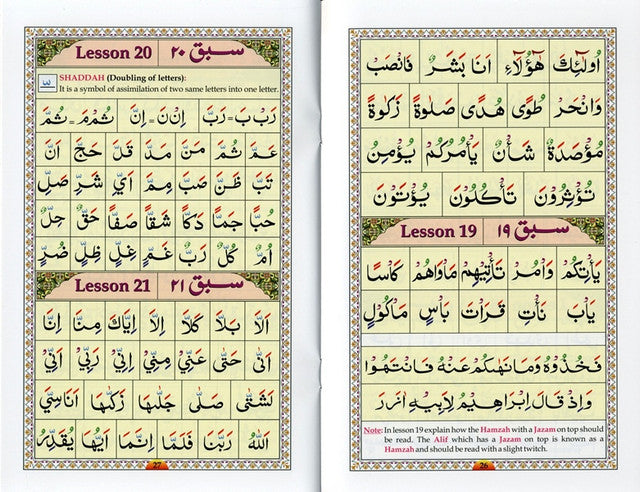 اُولٰٓئِكَ هٰٓؤُلَآءِ اَنَا بَشَرٌ فَانْصَبْ
وَانْحَرْ طُوًى هُدًى صَلٰوةً زَكٰوةً
مُؤْصَدَةٌ شَأْنٌ يَأْمُرُكُمْ يُؤْمِنُ
تُؤْثِرُوْنَ تَأْكُلُوْنَ يُؤْتُوْنَ
Lesson 19 سبق ١٩
يَأْتِكُمْ وَأْمُرْ تَأْتِيْهِمْ مَأْوٰهُمْ كَأْسًا
يَأْبَ نَأْتِ قَرَأْتَ بَأْسٍ مَأْكُوْلٍ
فَخُذُوْهُ وَمَا نَهٰىكُمْ عَنْهُ فَانْتَهُوْا
وَاِذْ قَالَ اِبْرَاهِيْمُ لِاَبِيْهِ اٰزَرَ
Note: In lesson 19 explain how the Hamzah with a Jazam on top should
be read. The Alif which has a Jazam on top is known as a
Hamzah and should be read with a slight twitch.
26
Lesson 20 سبق ٢٠
SHADDAH (Doubling of letters):
It is a symbol of assimilation of two same letters into one letter.
رَبْ بَ = رَبَّ اِنْ نَ = اِنَّ ثُمْ مَ = ثُمَّ
عَمَّ ثُمَّ مَنَّ مَدَّ قَلَّ حَجَّ اَنَّ
تَبَّ ظَنَّ صَبَّ مِمَّ اَيِّ شَرِّ صَلِّ
حُبًّا جَمًّا دَكًّا شَقًّا صَفًّا حَقٌّ حِلٌّ
اُمٌّ كُلٌّ رَبٌّ غَمٍّ غِلٍّ ظِلٍّ ضُرٍّ
Lesson 21 سبق ٢١
اَلَّا بَلَّا كَلَّا اِلَّا اِيَّاكَ مِنَّا اِنَّا
اَنّٰى حَتّٰى عَنِّيْ مِنِّيْ اِنِّيْ رَبِّيْ اَنِّيْ
لَشَتّٰى صَلّٰى جَلّٰىهَا زَكّٰىهَا اَنَاسِيَّ
اَللّٰهُ رَبَّنَا فَلَمَّا اِنَّمَا اَيُّهَا يُقَدِّرُ
27